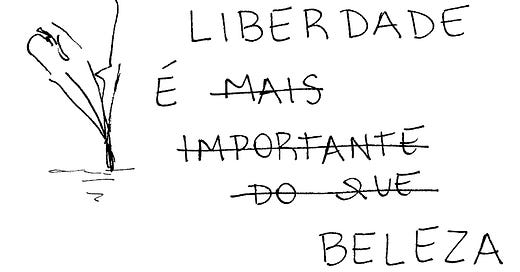 LIBERDADE
É MAIS
IMPORTANTE
DO QUE
BELEZA